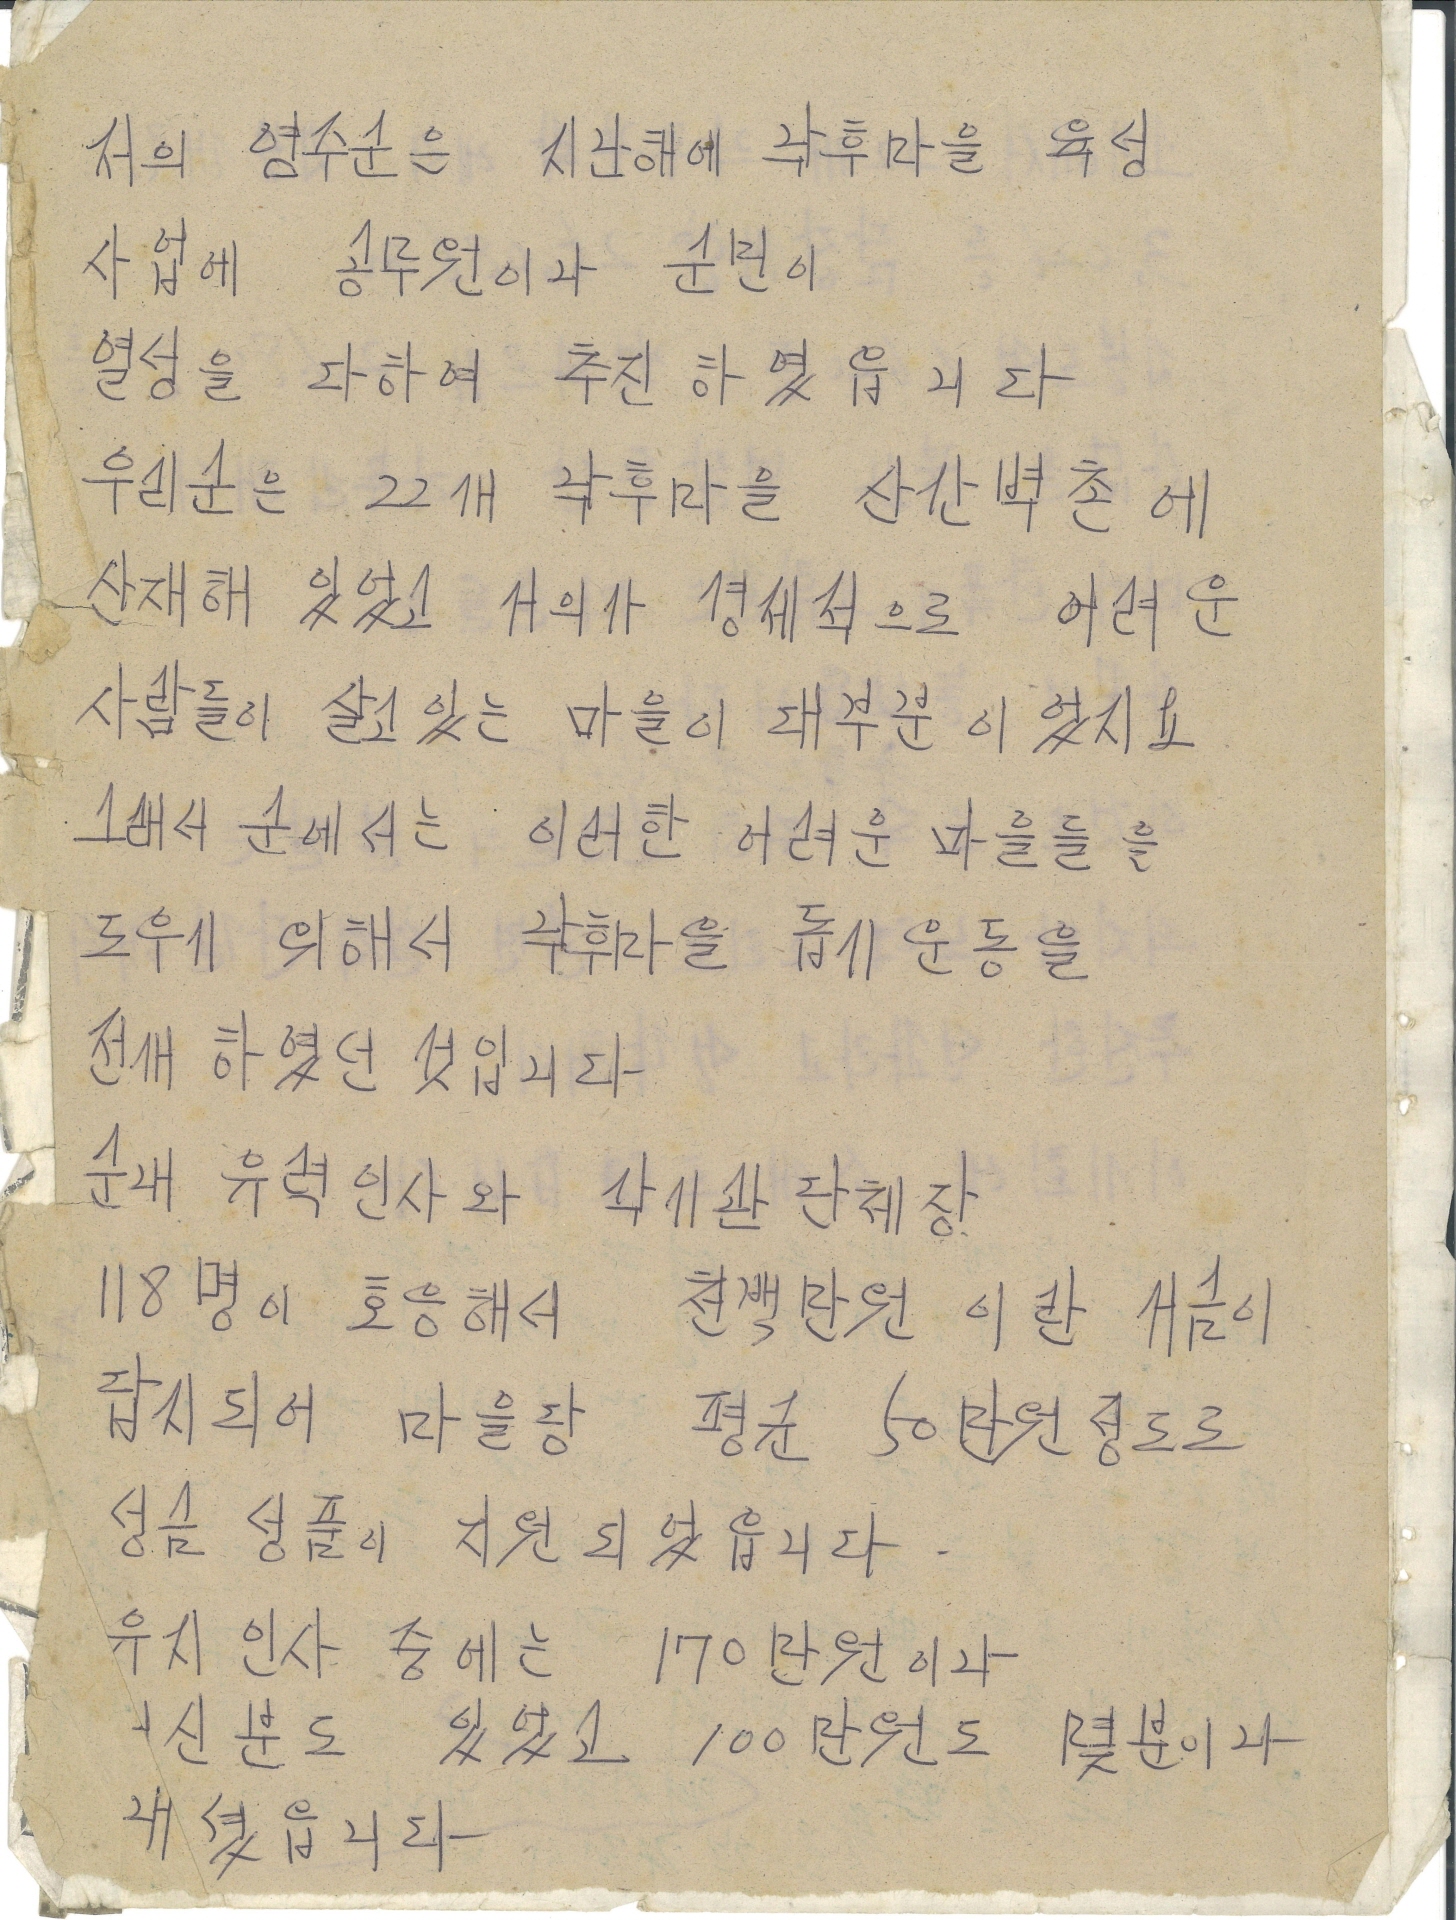 저의 영주군은 지난해에 낙후마을 육성
사업에 공무원이나 군민이
열성을 다하여 추진 하였읍니다
우리군은 22개 낙후마을 산간벽촌에
산재해 있었고 거의가 경제적으로 어려운
사람들이 살고있는 마을이 대부분 이었지요
그래서 군에서는 이러한 어려운 마을들을
도우기 위해서 낙후마을 돕기운동을
전개 하였던 것입니다
군내 유력인사와 각기관단체장
118명이 호응해서 천백만원 이란 거금이
답지되어 마을당 평균 50만원정도로
성금 성품이 지원되었읍니다.
유지 인사 중에는 170만원이나
내신분도 있었고 100만원도 몇분이나
내셨읍니다